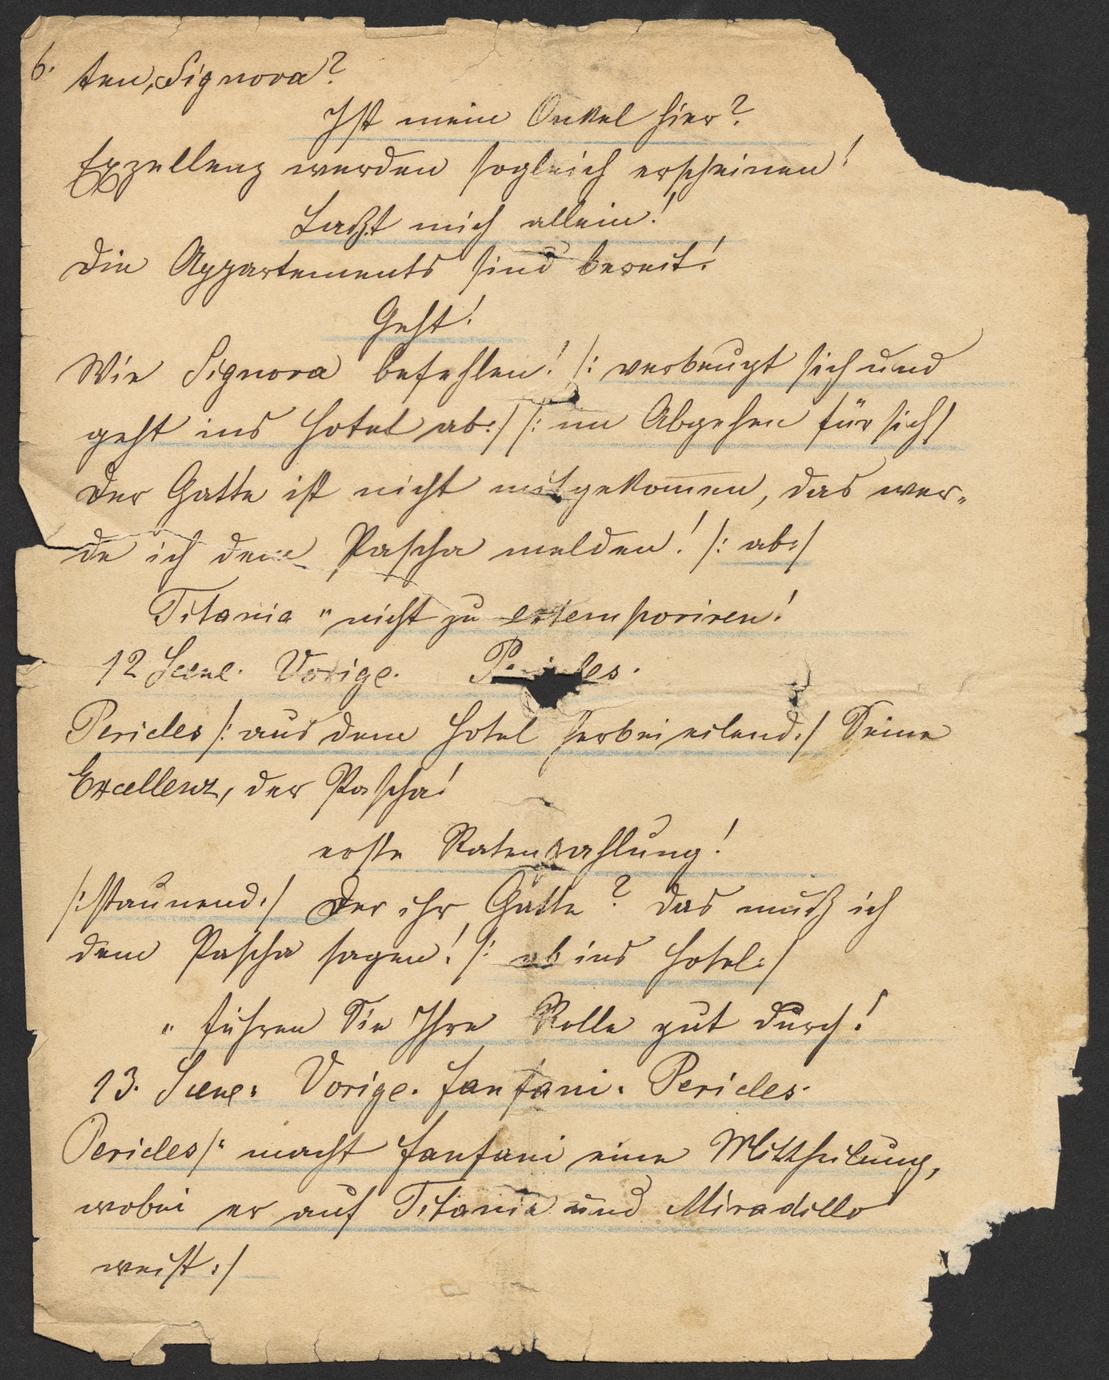 6. ten, Signora?
Ist mein Onkel hier?
Exzellenz werden sogleich erscheinen!
Laßt mich allein!
Die Appartements sind bereit!
Geht!
Wie Signora befehlen! /: verbeugt sich und
geht ins Hotel ab:/ /: im Abgehen für sich/
Der Gatte ist nicht mitgekom̅en, das wer-
de ich dem Pascha melden! /: ab:/
Titania " nicht zu extemporiren!
12 Scene. Vorige. Pericles.
Pericles /: aus dem Hotel herbei eilend:/ Seine
Excellenz, der Pascha!
erste Ratenzahlung!
/: staunend:/ Der ihr Gatte? Das muß ich
dem Pascha sagen! /: ab ins Hotel:/
" führen Sie Ihre Rolle gut durch!
13. Scene. Vorige. Fanfani. Pericles.
Pericles /: macht Fanfani eine Mittheilung,
wobei er auf Titania und Miradillo
weist:/